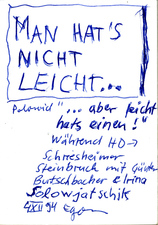 MAN HAT'S
NICHT
LEICHT...
"...aber leicht
hats einen!"
Während HD→
Schriesheimer
Steinbruch mit Günter
Butschbacher & Irina
Solowjatschik
4XII 94 Egon